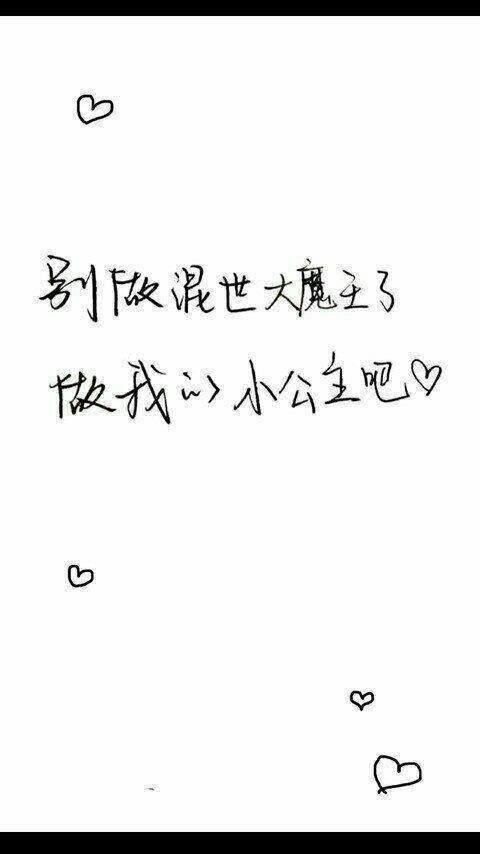 别做混世大魔王了
做我的小公主吧♡